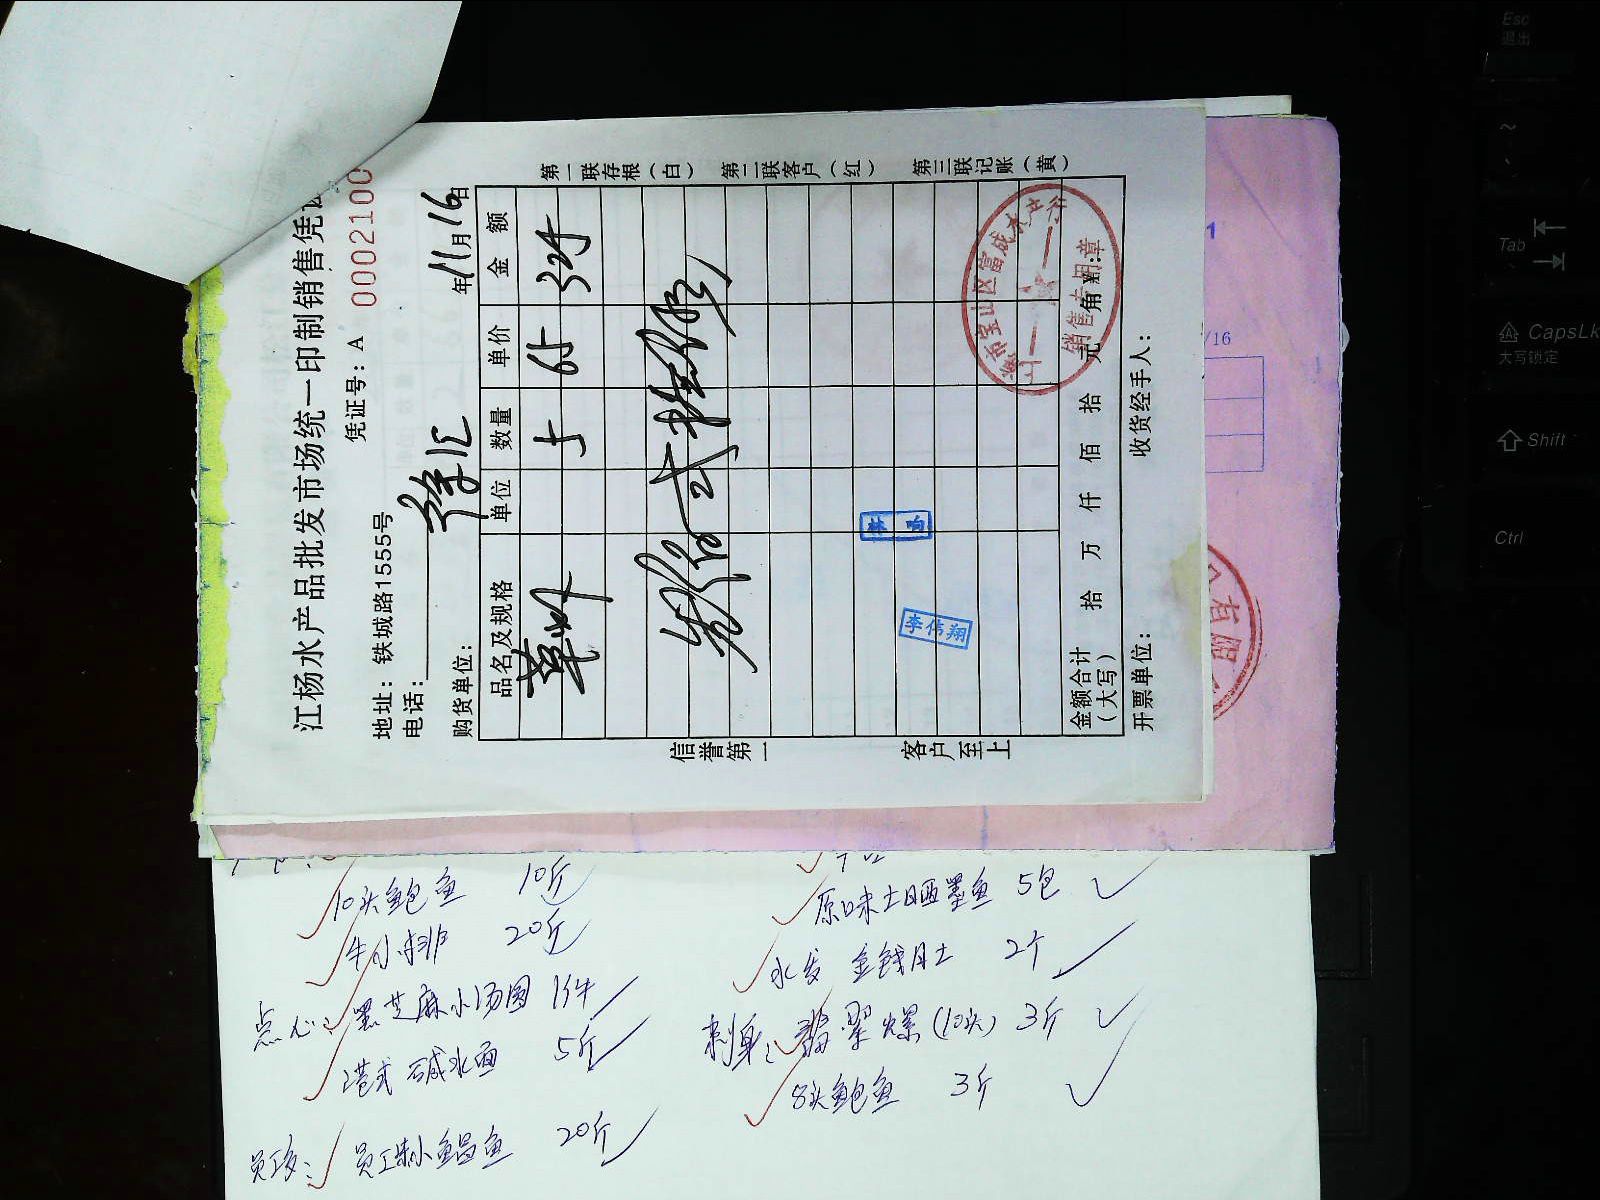 江杨水产品批发市场统一印制销售凭
凭证号：A 0002100
地址：铁城路15555号
电话：
年11月16日
购货单位：徐汇
品名及规格 单位 数量 单价 金额
草虾 5 65 325
金额合计（大写） 拾 万 仟 佰 拾 元 角
开票单位： 收货经手人：
第一联存根（白） 第二联客户（红） 第三联记账（黄）
信誉第一 客户至上
海市宝山区富成水产行
销售专用章
林响
李伟翔
1
/16
有限
10头鲍鱼 10斤
牛小排 20斤
点心：黑芝麻小汤圆 1件
港式碱水面 5斤
员工餐：员工制小鲳鱼 20斤
原味土晒墨鱼 5包
水发金钱肚 2个
刺身：翡翠螺（10头）3斤
8头鲍鱼 3斤
Esc
退出
Tab
CapsLk
大写锁定
Shift
Ctrl